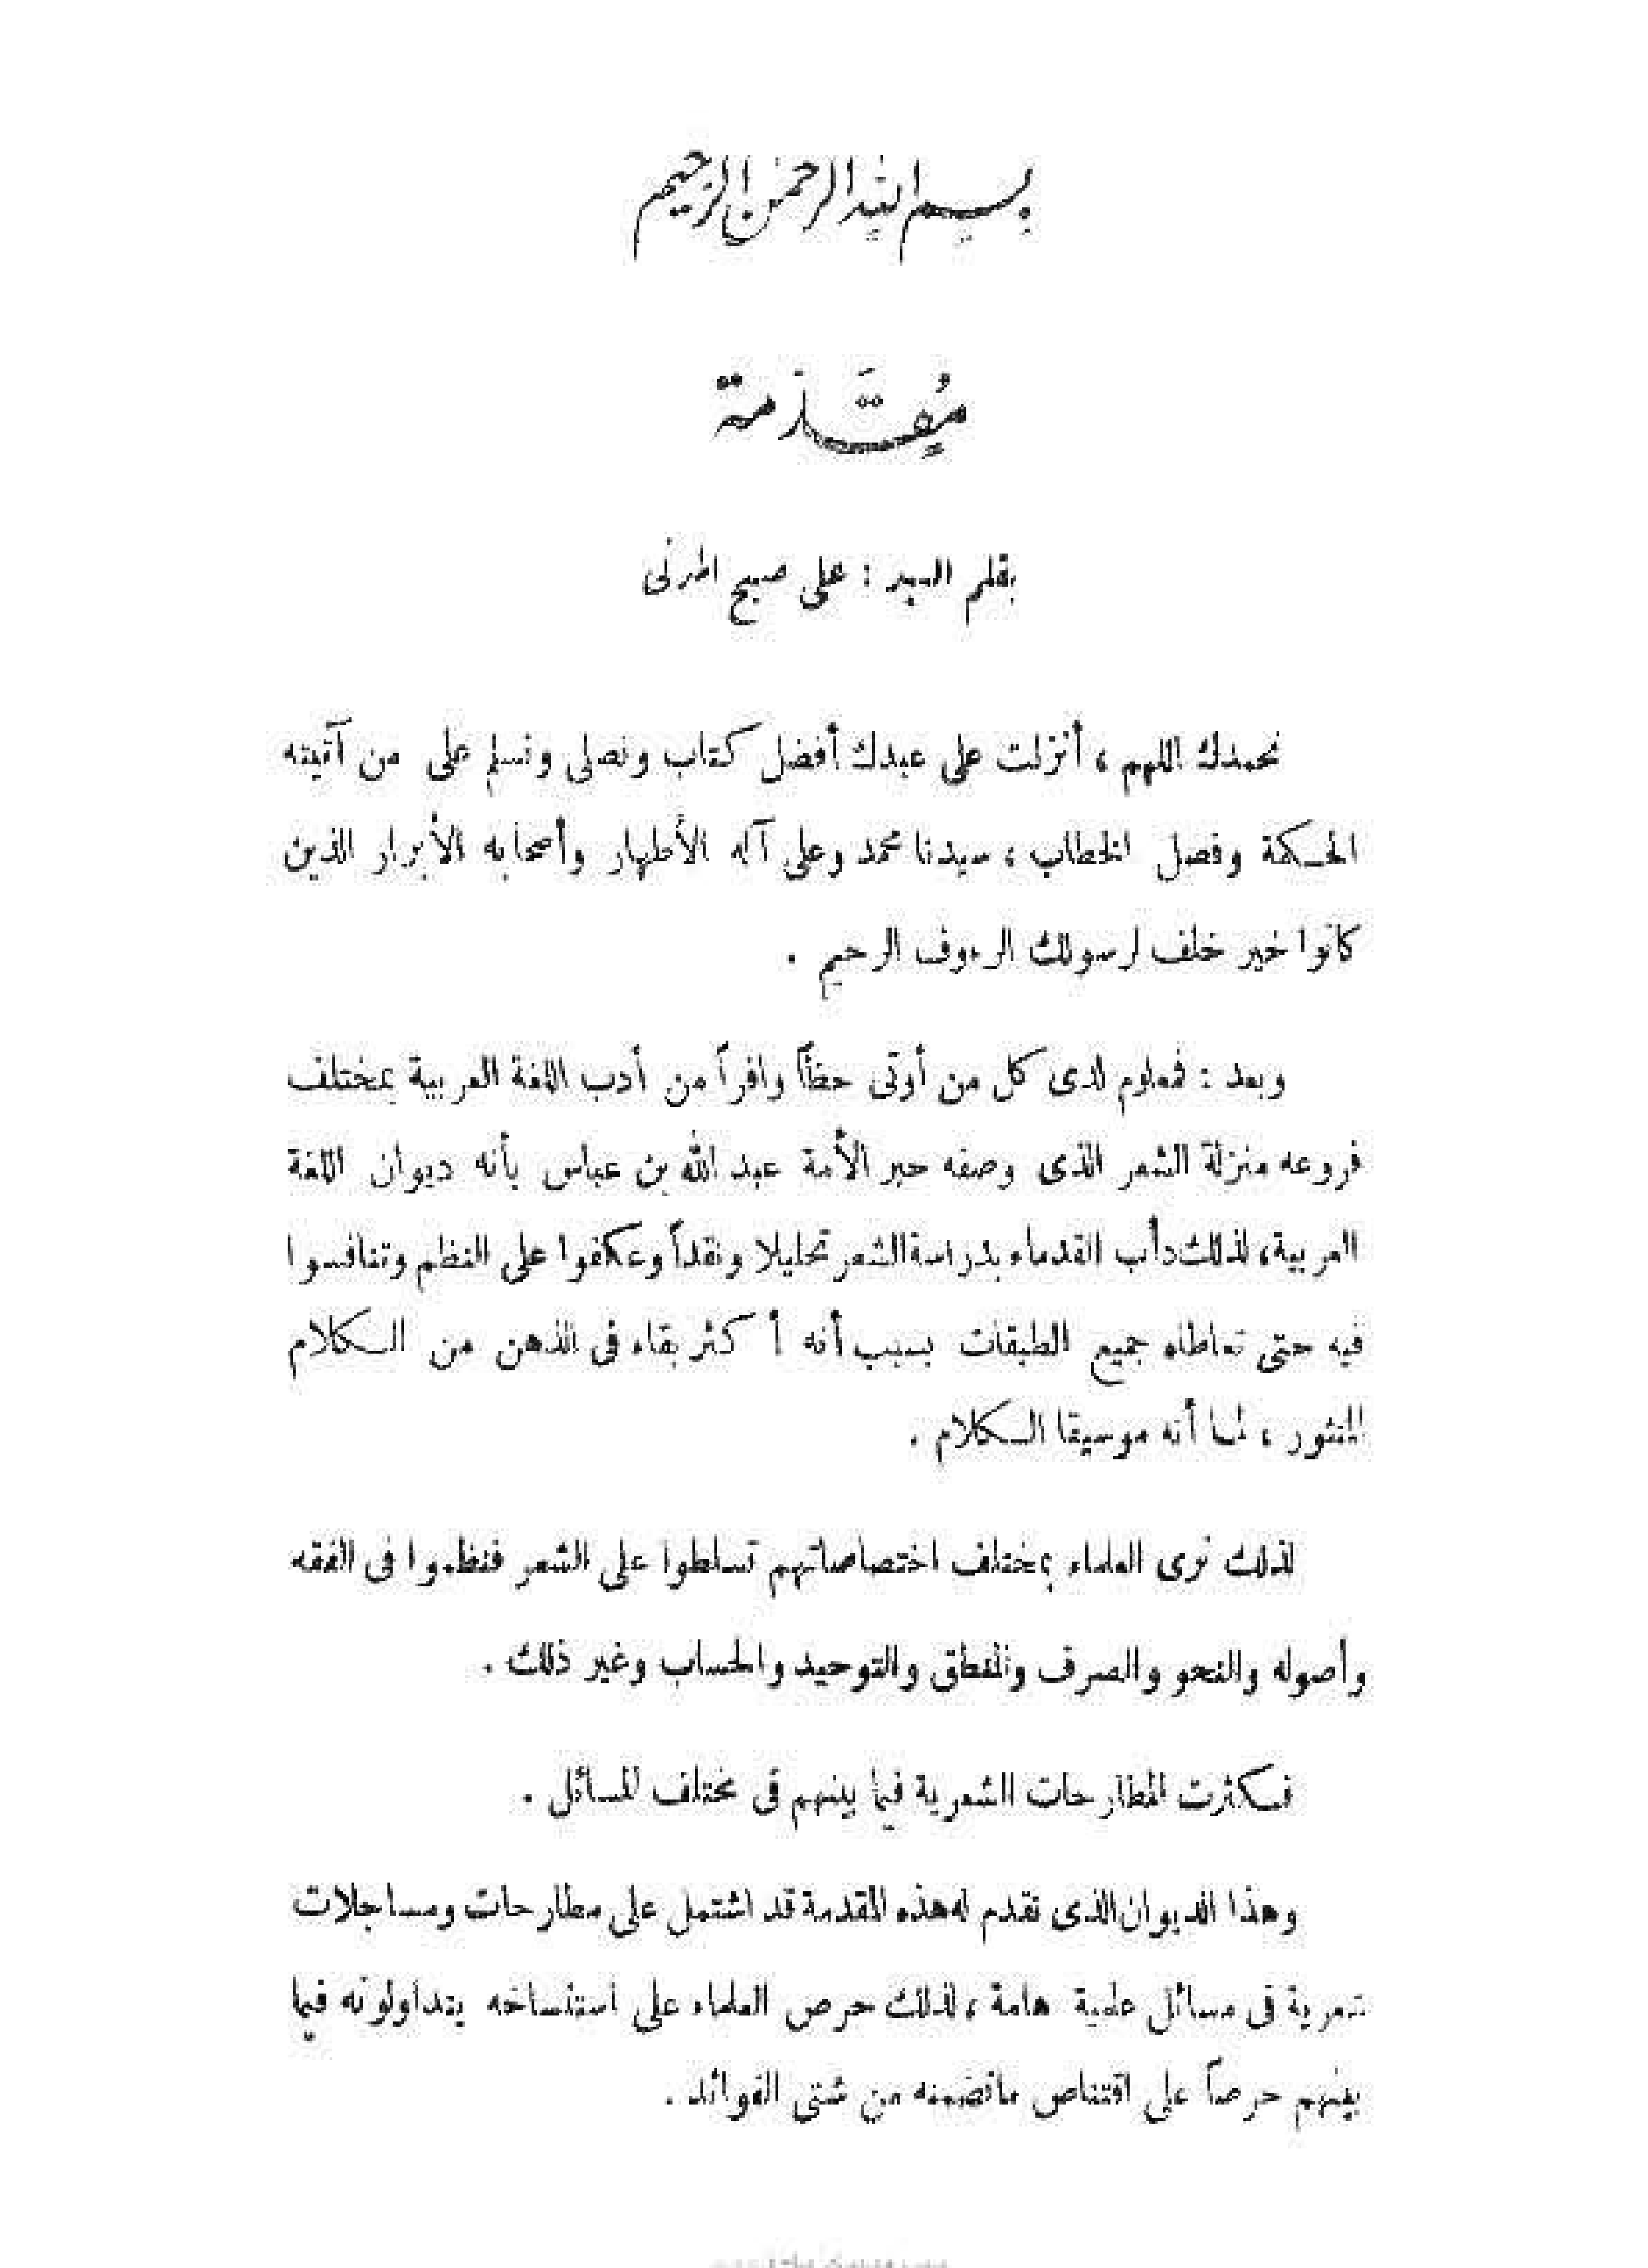 بسم الله الرحمن الرحيم
مُقَدمة
بقلم السيد : على صبح المدنى
نحمدك اللهم ، أنزلت على عبدك أفضل كتاب ونصلى ونسلم على من آتيته
الحكمة وفصل الخطاب ، سيدنا محمد وعلى آله الأطهار وأصحابه الأبرار الذين
كانوا خير خلف لرسولك الرءوف الرحيم .
وبعد : فمعلوم لدى كل من أوتى حظاً وافراً من أدب اللغة العربية بمختلف
فروعه منزلة الشعر الذى وصفه حبر الأمة عبد الله بن عباس بأنه ديوان اللغة
العربية، لذلك دأب القدماء بدراسة الشعر تحليلا ونقداً وعكفوا على النظم وتنافسوا
فيه حتى تعاطاه جميع الطبقات بسبب أنه أكثر بقاء فى الذهن من الكلام
المنثور ، لما أنه موسيقا الكلام .
لذلك نرى العلماء بمختلف اختصاصاتهم تسلطوا على الشعر فنظموا فى الفقه
وأصوله والنحو والصرف والمنطق والتوحيد والحساب وغير ذلك .
فكثرت المطارحات الشعرية فيما بينهم فى مختلف المسائل .
وهذا الديوان الذى نقدم له هذه المقدمة قد اشتمل على مطارحات ومساجلات
شعرية فى مسائل علمية هامة ، لذلك حرص العلماء على استنساخه يتداولونه فيما
بينهم حرصاً على اقتناص ما تضمنه من شتى الفوائد .